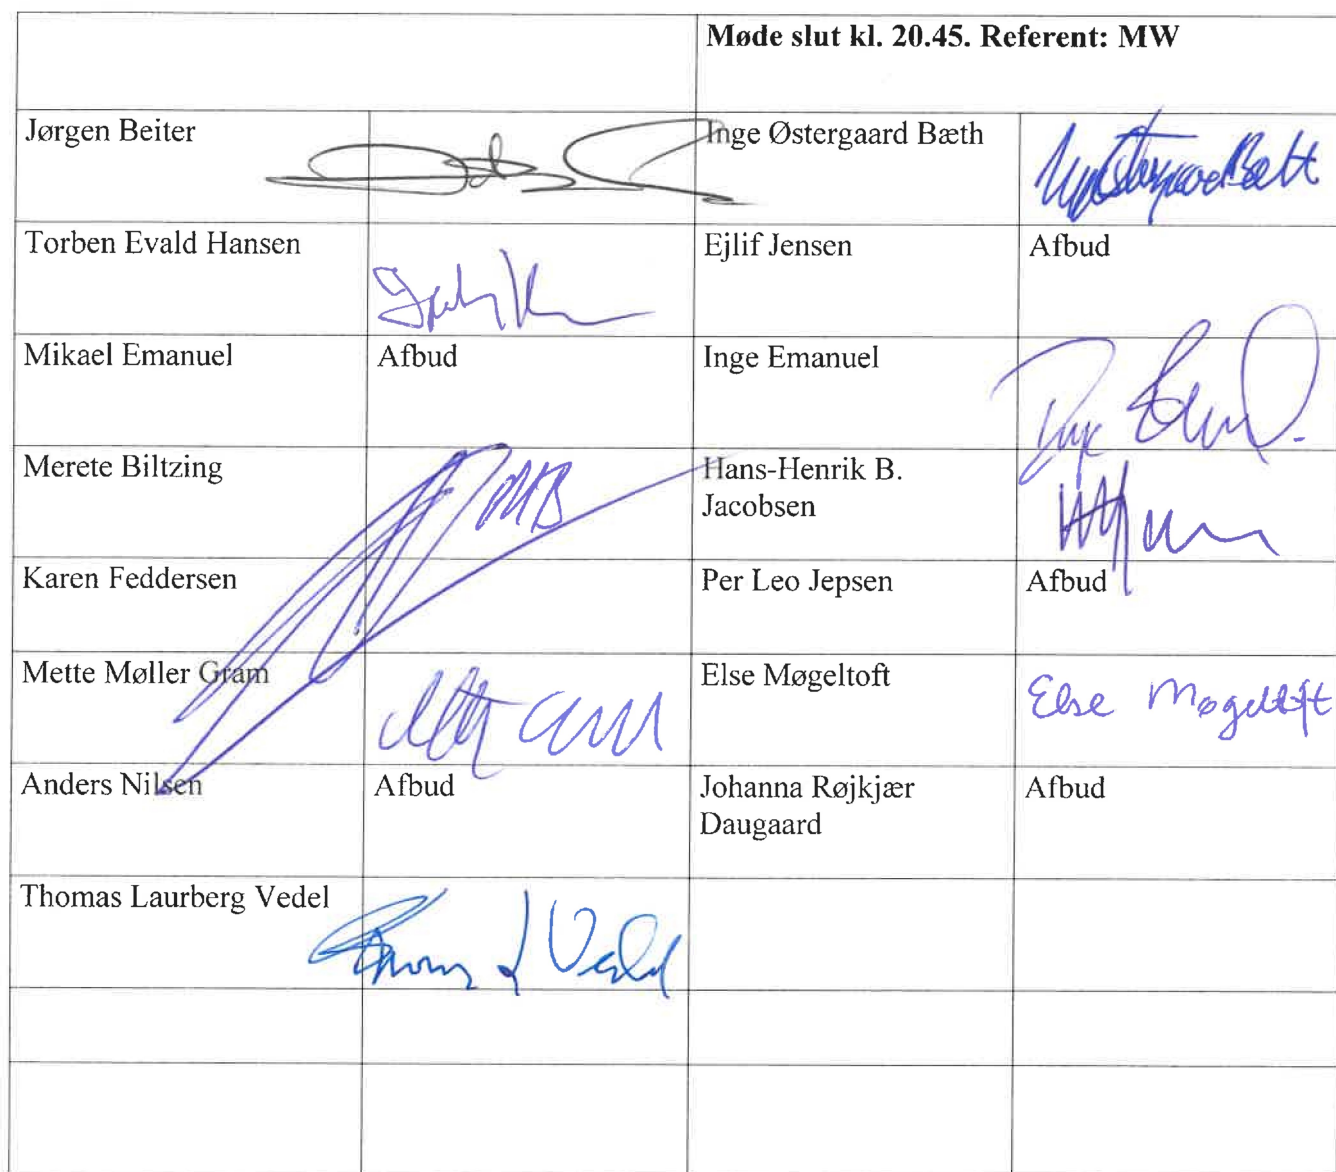 Møde slut kl. 20.45. Referent: MW
Jørgen Beiter
Inge Østergaard Bæth
Torben Evald Hansen
Ejlif Jensen
Afbud
Mikael Emanuel
Afbud
Inge Emanuel
Merete Biltzing
MB
Hans-Henrik B.
Jacobsen
Karen Feddersen
Per Leo Jepsen
Afbud
Mette Møller Gram
Else Møgeltoft
Else Møgeltoft
Anders Nilsen
Afbud
Johanna Røjkjær
Daugaard
Afbud
Thomas Laurberg Vedel